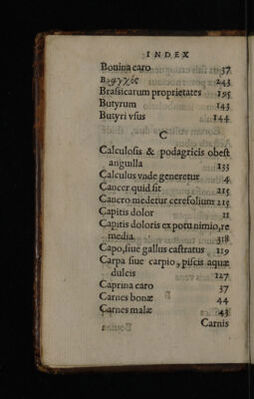 INDEX
Bouina caro 37
Βρόγχος 243
Brassicarum proprietates 195
Butyrum 143
Butyri vsus 144
C
Calculosis & podagricis obest
anguilla 133
Calculus vnde generetur 4
Cancer quid sit 215
Cancro medetur cerefolium 215
Capitis dolor 11
Capitis doloris ex potu nimio, re
media 318
Capo, siue gallus castratus 119
Carpa siue carpio, piscis aquæ
dulcis 127
Caprina caro 37
Carnes bonæ 44
Carnes malæ 43
Carnis